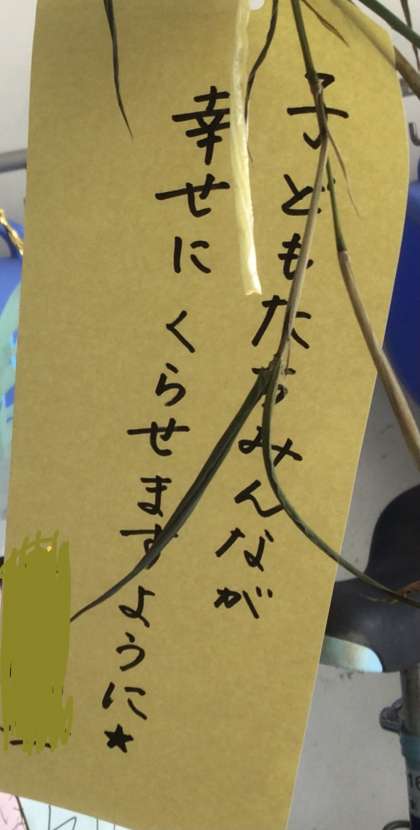 子どもたちみんなが
幸せにくらせますように★